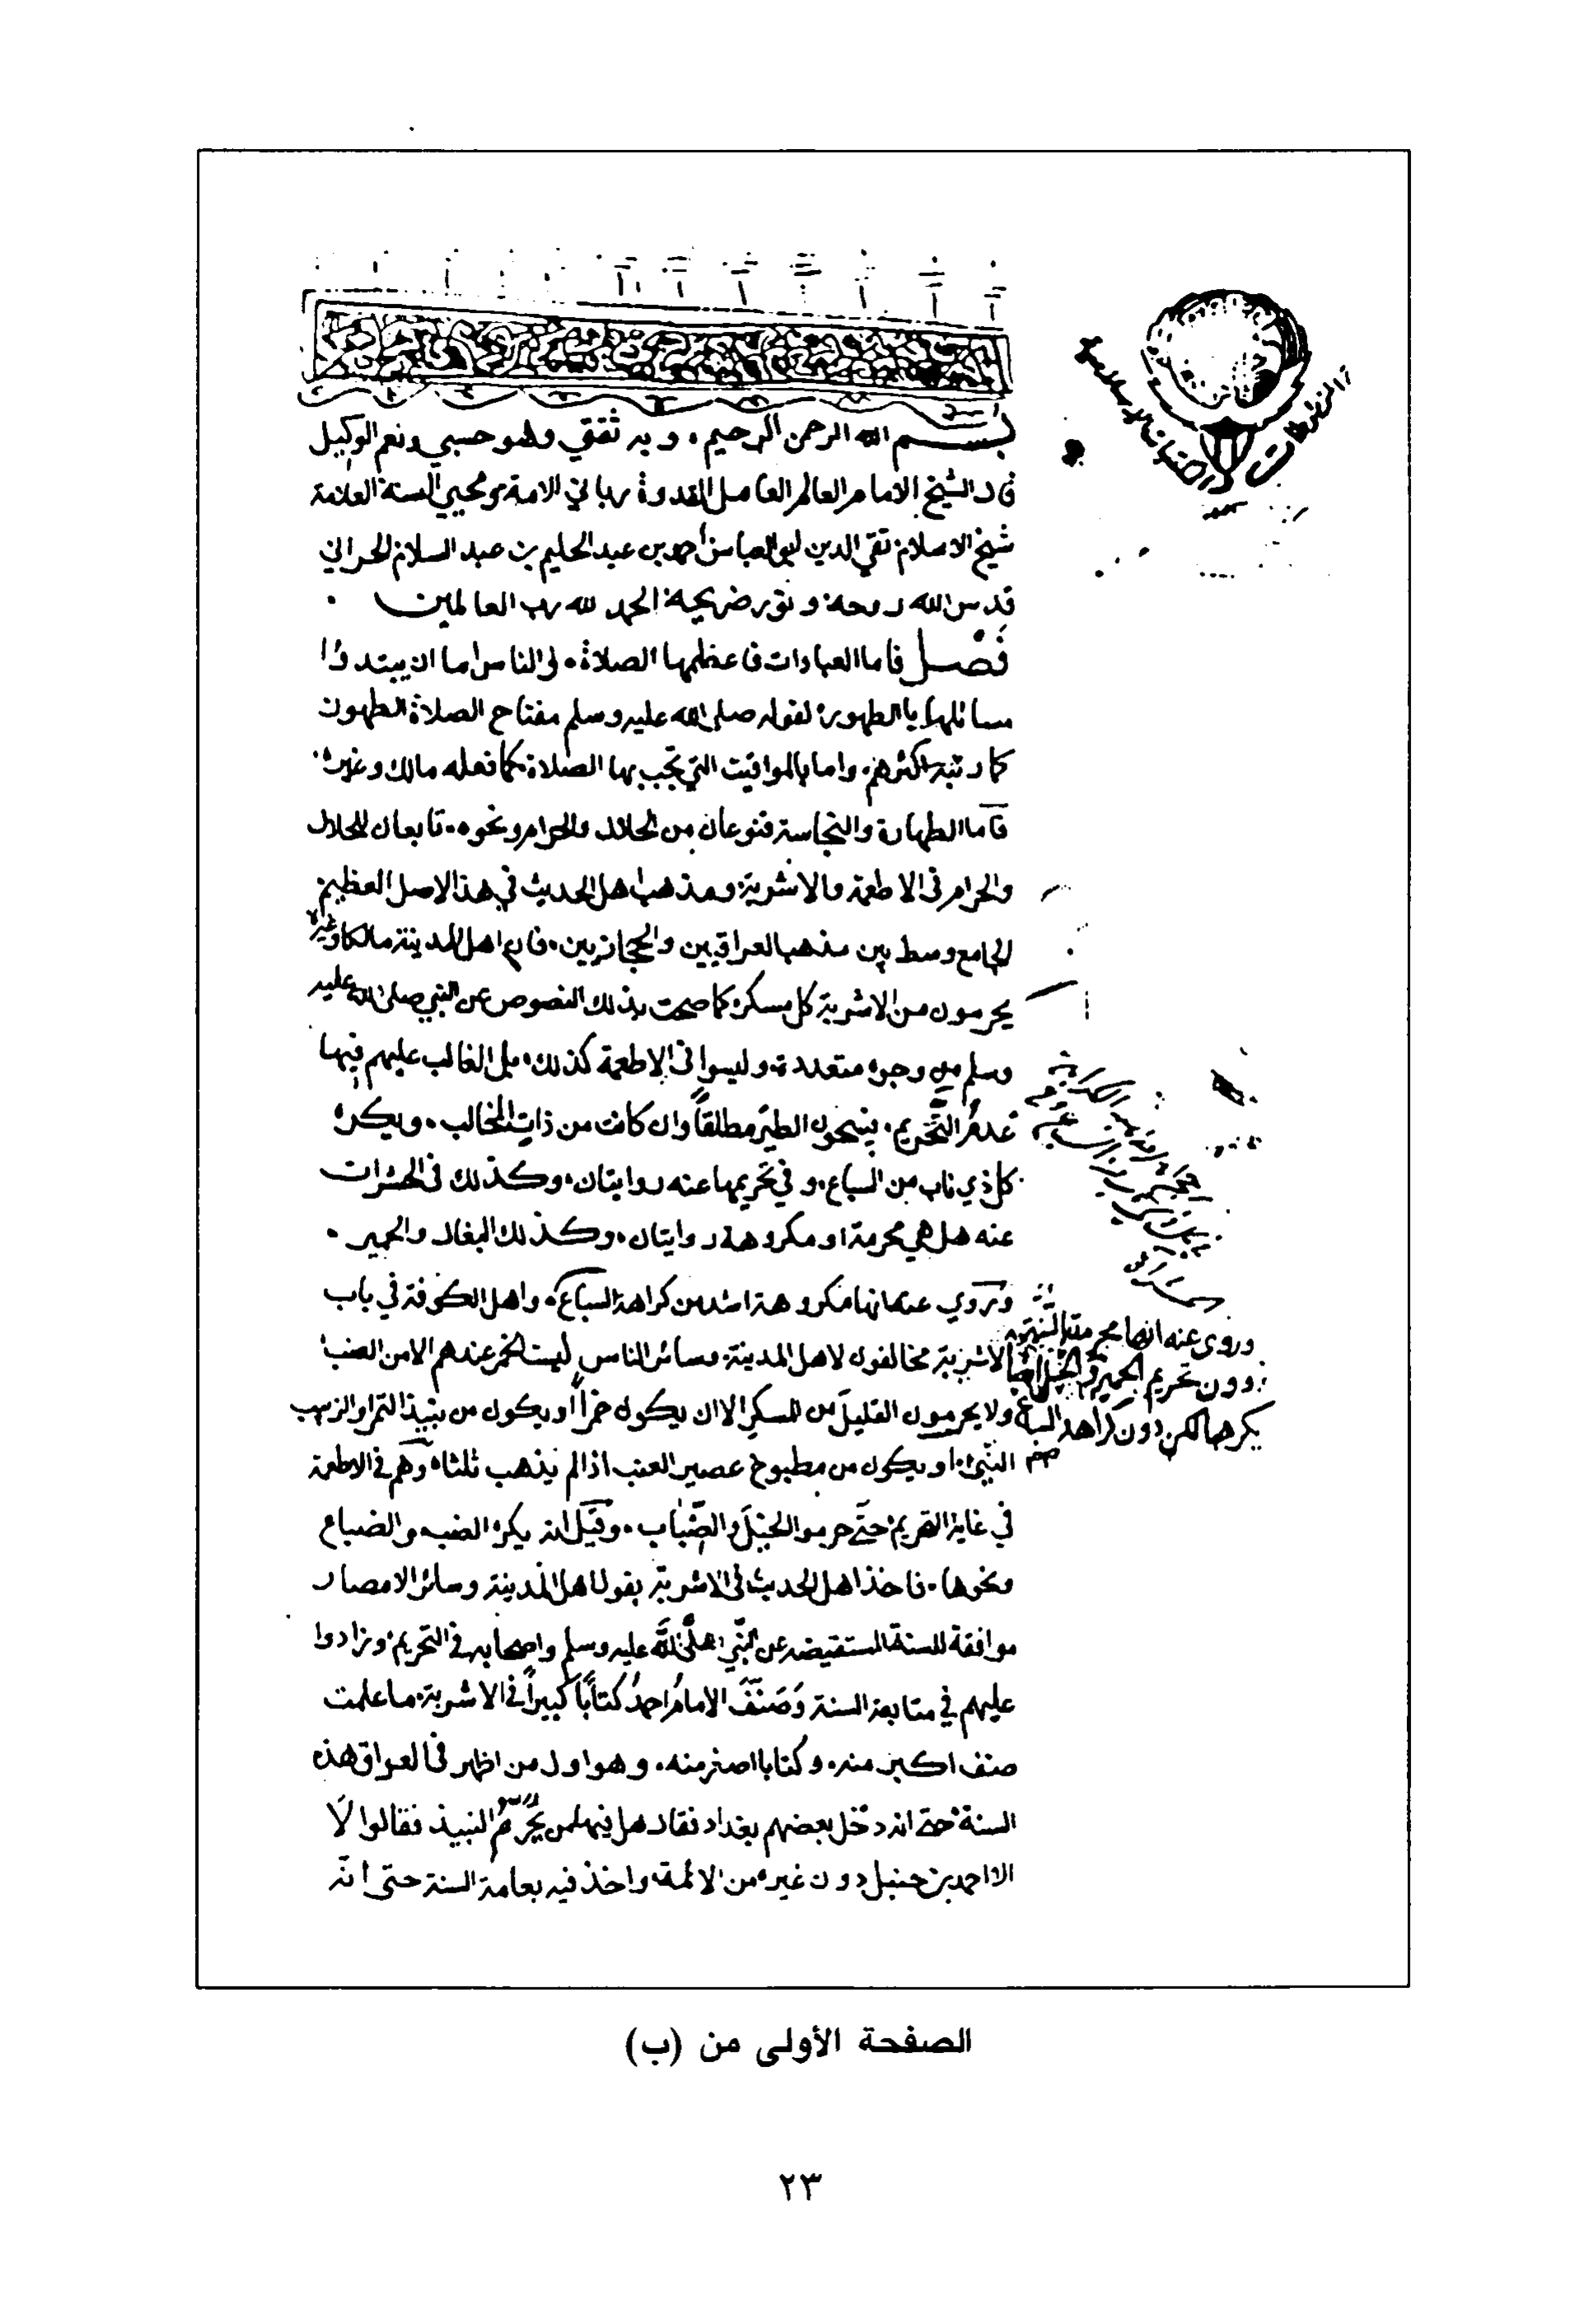 بسم الله الرحمن الرحيم، وبه ثقتي وهو حسبي ونعم الوكيل
قال الشيخ الامام العالم العامل القدوة رباني الامة ومحيي السنة العلامة
شيخ الاسلام تقي الدين ابو العباس احمد بن عبد الحليم بن عبد السلام الحراني
قدس الله روحه ونور ضريحه الحمد لله رب العالمين
فَصْل فاما العبادات فاعظمها الصلاة، والناس اما ان يبتدؤا
مسائلها بالطهور لقوله صلى الله عليه وسلم مفتاح الصلاة الطهور
كما رتبه اكثرهم، واما بالمواقيت التي تجب بها الصلاة كما فعله مالك وغيره
فاما الطهارة والنجاسة فنوعان من الحلال والحرام ونحوه، تابعان للحلال
والحرام في الاطعمة والاشربة ومذهب اهل الحديث في هذا الاصل العظيم
الجامع وسط بين مذهب العراقيين والحجازيين، فان اهل المدينة مالكا وغيره
يحرمون من الاشربة كل مسكر كما صحت بذلك النصوص عن النبي صلى الله عليه
وسلم من وجوه متعددة، وليسوا في الاطعمة كذلك، بل الغالب عليهم فيها
عدمُ التَّحْرِيم، فيبيحون الطير مطلقاً وان كانت من ذات المخالب، ويكره
كل ذي ناب من السباع، وفي تحريمها عنه روايتان، وكذلك في الحشرات
عنه هل هي محرمة او مكروهة روايتان، وكذلك البغال والحمير
وروي عنه انها مكروهة اشد من كراهة السباع، واهل الكوفة في باب
وروى عنه انها محرمة
الاشربة مخالفون لاهل المدينة وسائر الناس ليست الخمر عندهم الا من العنب
دون تحريم الحمير والخيل ايضا
ولا يحرمون القليل من المسكر الا ان يكون خمراً او يكون من نبيذ التمر والزبيب
يكرهها لكن دون كراهة السباع
النيّ، او يكون من مطبوخ عصير العنب اذا لم يذهب ثلثاه وهم في الاطعمة
في غاية التحريم حتى حرموا الخيل والضباب، وقيل انه يكره الضب والضباع
ونحوها، فاخذ اهل الحديث في الاشربة بقول اهل المدينة وسائر الامصار
موافقة للسنة المستفيضه عن النبي صلى الله عليه وسلم واصحابه في التحريم وزادوا
عليهم في متابعة السنة وَصَنَّفَ الامامُ احمدُ كتاباً كبيراً في الاشربة، ما علمت
صنف اكبر منه، وكتابا اصغر منه، وهو اول من اظهر في العراق هذه
السنة حتى انه دخل بعضهم بغداد فقال هل فيها من يُحَرِّمُ النبيذ فقالوا لَا
الا احمد بن حنبل دون غيره من الائمة، واخذ فيه بعامة السنة حتى انّه
الصفحة الأولى من (ب)
٢٣